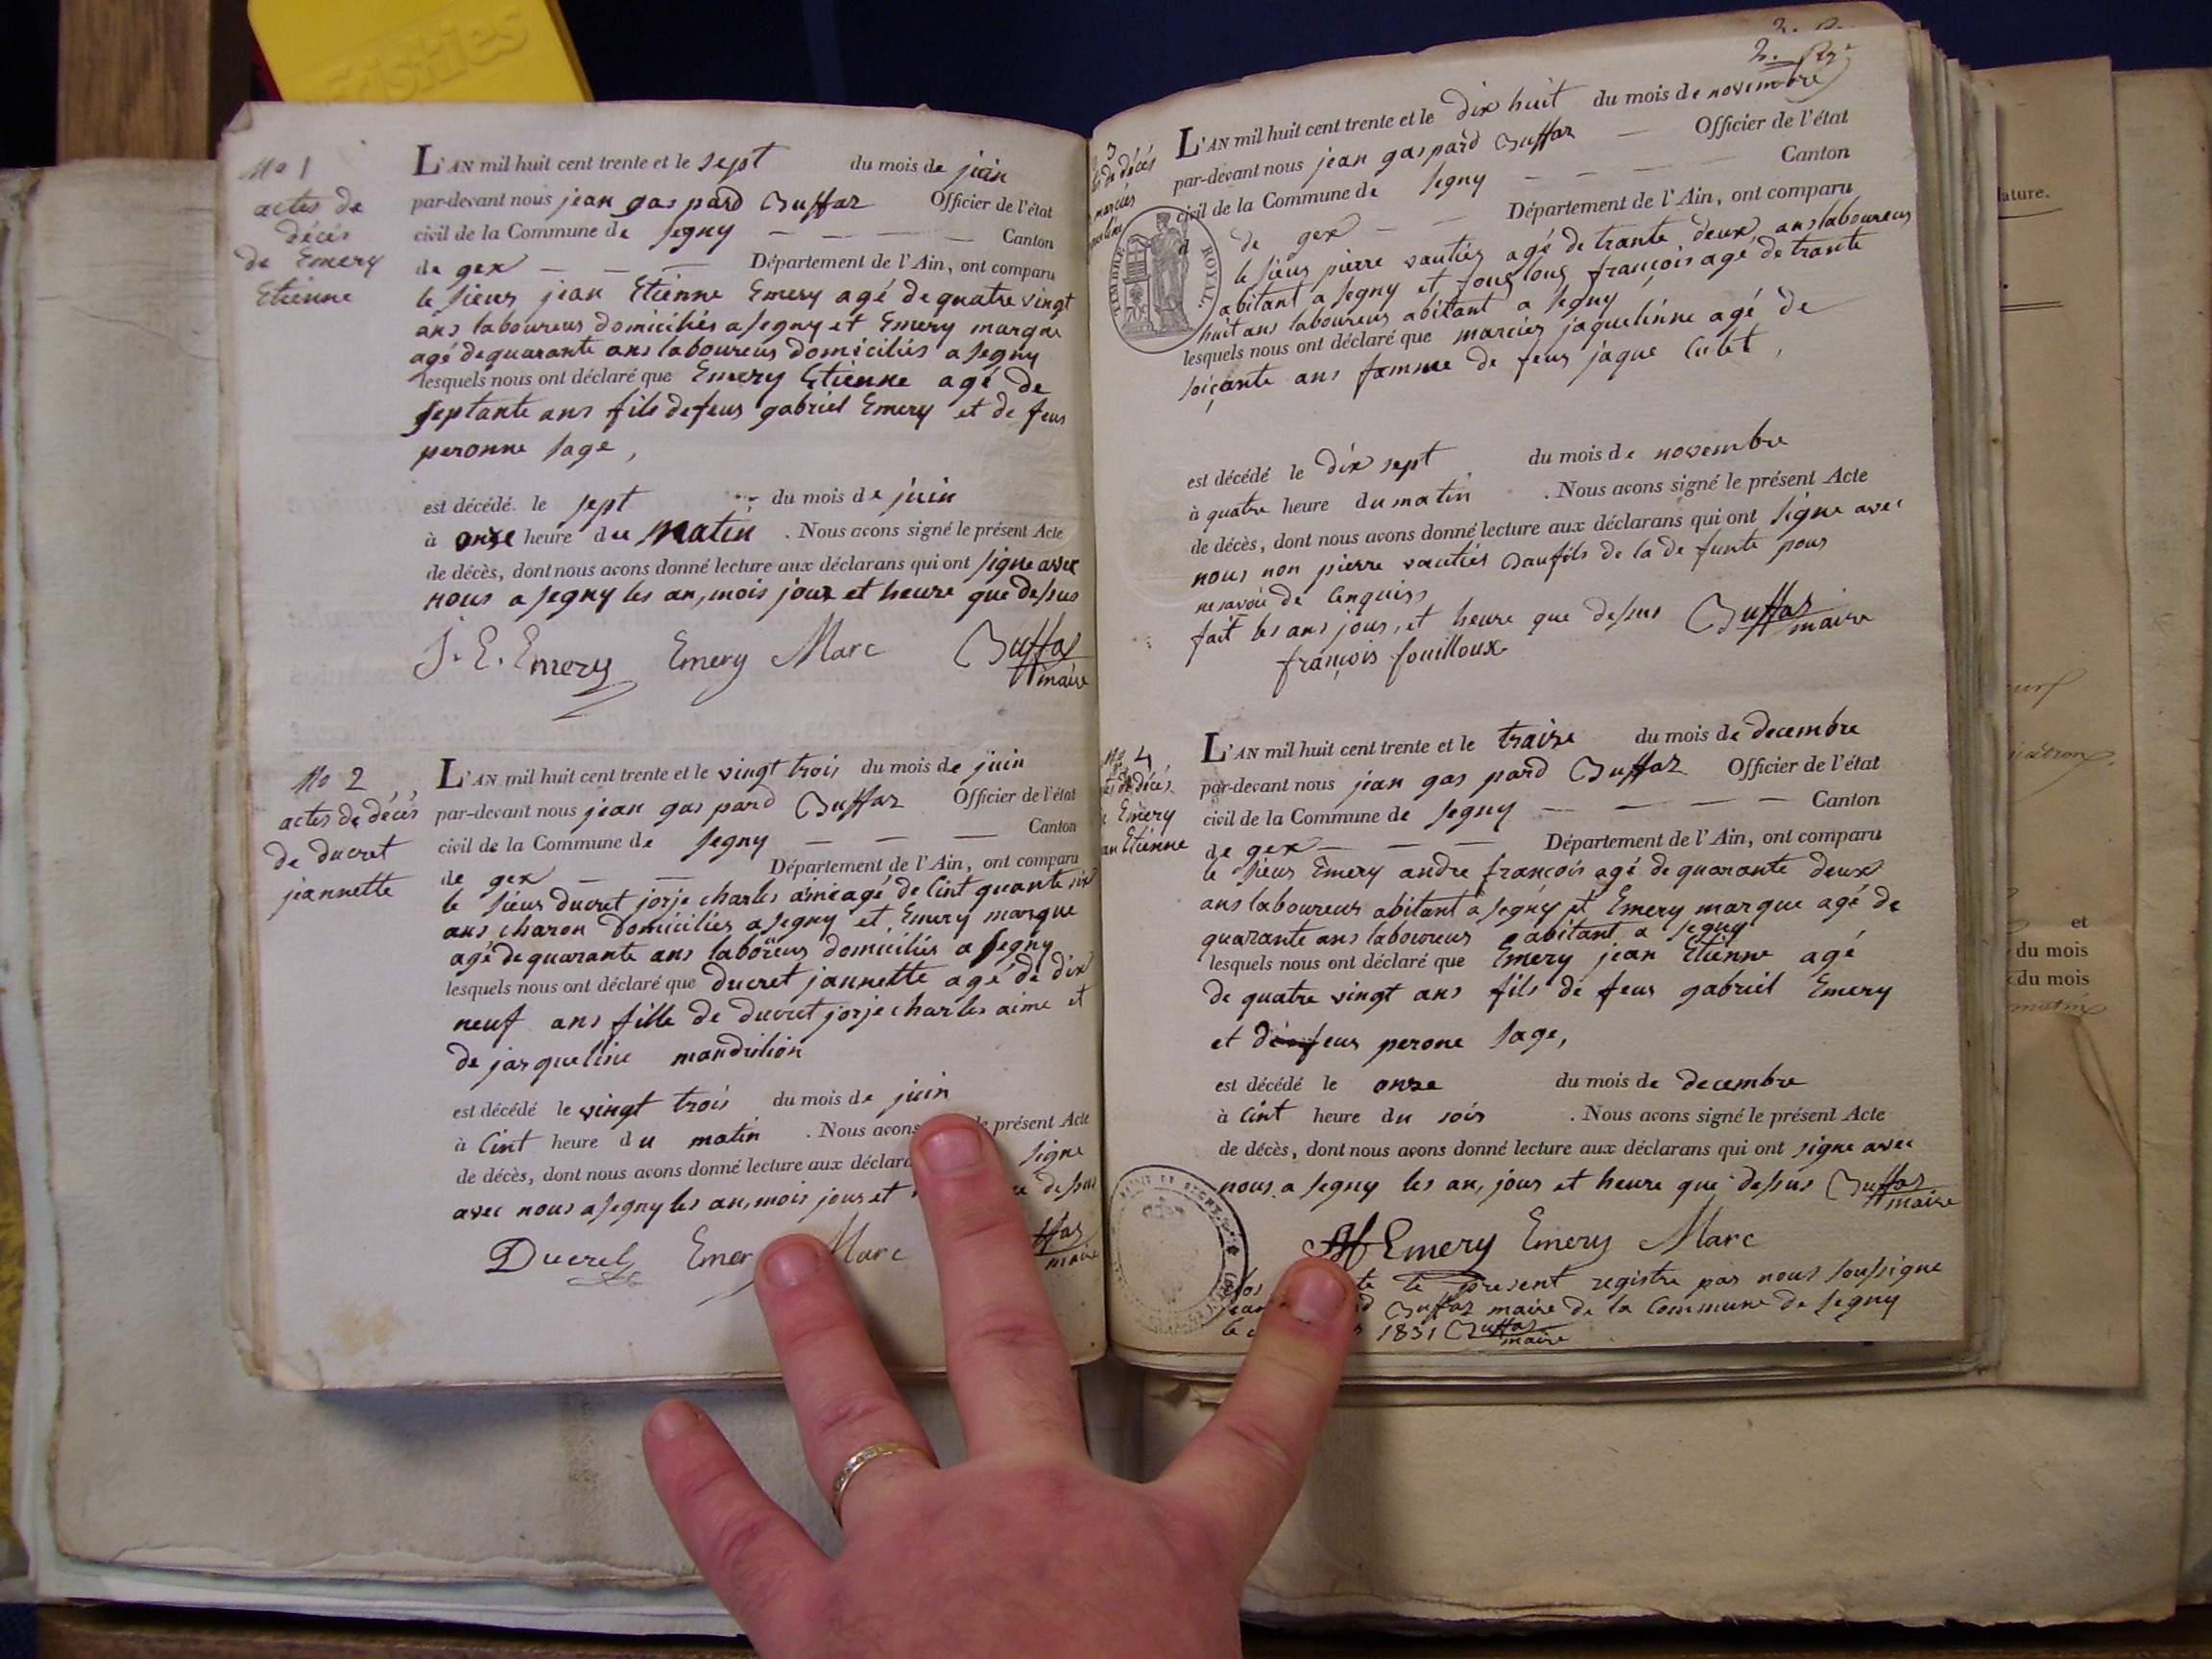 Friskies
No 1
actes de
décès
de Emery
Etienne
L'AN mil huit cent trente et le sept du mois de juin
par-devant nous jean gas pard Buffaz Officier de l'état
civil de la Commune de segny — — — — Canton
de gex — — — Département de l'Ain, ont comparu
le sieur jean Etienne Emery agé de quatre vingt
ans laboureur domiciliés a segny et Emery marque
agé de quarante ans laboureur domiciliés a segny
lesquels nous ont déclaré que Emery Etienne agé de
septante ans fils de feus gabriel Emery et de feus
peronne sage,
est décédé le sept du mois de juin
à onze heure du matin . Nous avons signé le présent Acte
de décès, dont nous avons donné lecture aux déclarans qui ont signe avec
nous a segny les an, mois jour et heure que dessus
J. E. Emery Emery Marc Buffaz
maire
No 2
actes de décés
de ducret
jeannette
L'AN mil huit cent trente et le vingt trois du mois de juin
par-devant nous jean gas pard Buffaz Officier de l'état
civil de la Commune de segny — — — Canton
de gex — — Département de l'Ain, ont comparu
le sieur ducret jorje charles aimé agé de cint quante six
ans charon domiciliés a segny et Emery marque
agé de quarante ans laboreur domiciliés a segny
lesquels nous ont déclaré que ducret jannette agé de dix
neuf ans fille de ducret jorje charles aime et
de jasqueline mandrilion
est décédé le vingt trois du mois de juin
à cint heure du matin . Nous avons le présent Acte
de décès, dont nous avons donné lecture aux déclara signe
avec nous a segny les an, mois jour et dessus
Ducret Emer Marc ffaz
maire
3
de décès
marciés
L'AN mil huit cent trente et le dix huit du mois de novembre
par-devant nous jean gaspard Buffaz — Officier de l'état
civil de la Commune de segny — — — — Canton
de gex — — Département de l'Ain, ont comparu
le sieur pierre vautiés agé de trante deux ans laboureur
abitant a segny et fouglous françois agé de trante
huit ans laboureur abitant a segny
lesquels nous ont déclaré que marciés jaquelinne agé de
soiçante ans famme de feus jaque
TIMBRE ROYAL.
est décédé le dix sept du mois de novembre
à quatre heure du matin . Nous avons signé le présent Acte
de décès, dont nous avons donné lecture aux déclarans qui ont signe avec
nous non pierre vautiés baufils de la de funte pour
ne savoir de enquiss
fait les ans jours, et heure que dessus Buffaz
maire
françois fouilloux
No 4
de décés
Emery
an Etienne
L'AN mil huit cent trente et le traize du mois de decembre
par-devant nous jean gas pard Buffaz Officier de l'état
civil de la Commune de segny — — — — Canton
de gex — — — Département de l'Ain, ont comparu
le sieur Emery andre françois agé de quarante deux
ans laboureur abitant a segny et Emery marque agé de
quarante ans laboureur abitant a segny
lesquels nous ont déclaré que Emery jean Etienne agé
de quatre vingt ans fils de feus gabriel Emery
et de feus perone sage,
est décédé le onze du mois de decembre
à cint heure du soir . Nous avons signé le présent Acte
de décès, dont nous avons donné lecture aux déclarans qui ont signe avec
nous a segny les an, jours et heure que dessus Buffaz
maire
Emery Emery Marc
clos te le present registre par nous soussigne
jean d Buffaz maire de la Commune de segny
le 1831 Buffaz
maire
ature.
et
du mois
du mois